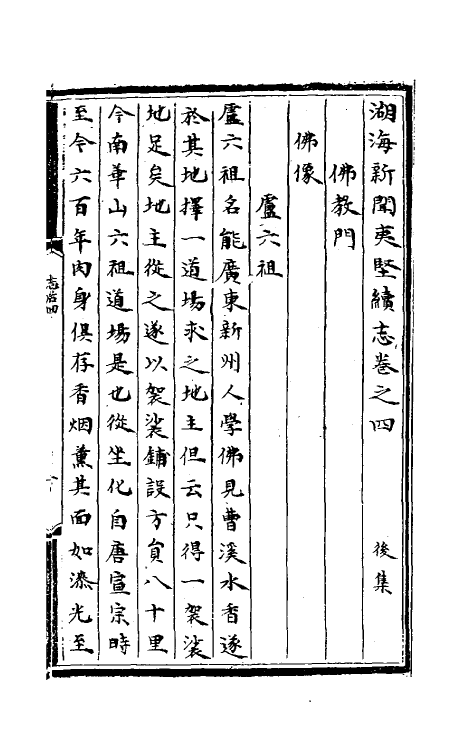 湖海新聞夷堅續志卷之四　後集
佛教門
佛像
盧六祖
盧六祖名能廣東新州人學佛見曹溪水香遂
於其地擇一道場求之地主但云只得一袈裟
地足矣地主從之遂以袈裟鋪設方負八十里
今南華山六祖道場是也從坐化自唐宣宗時
至今六百年肉身俱存香烟薰其面如漆光至